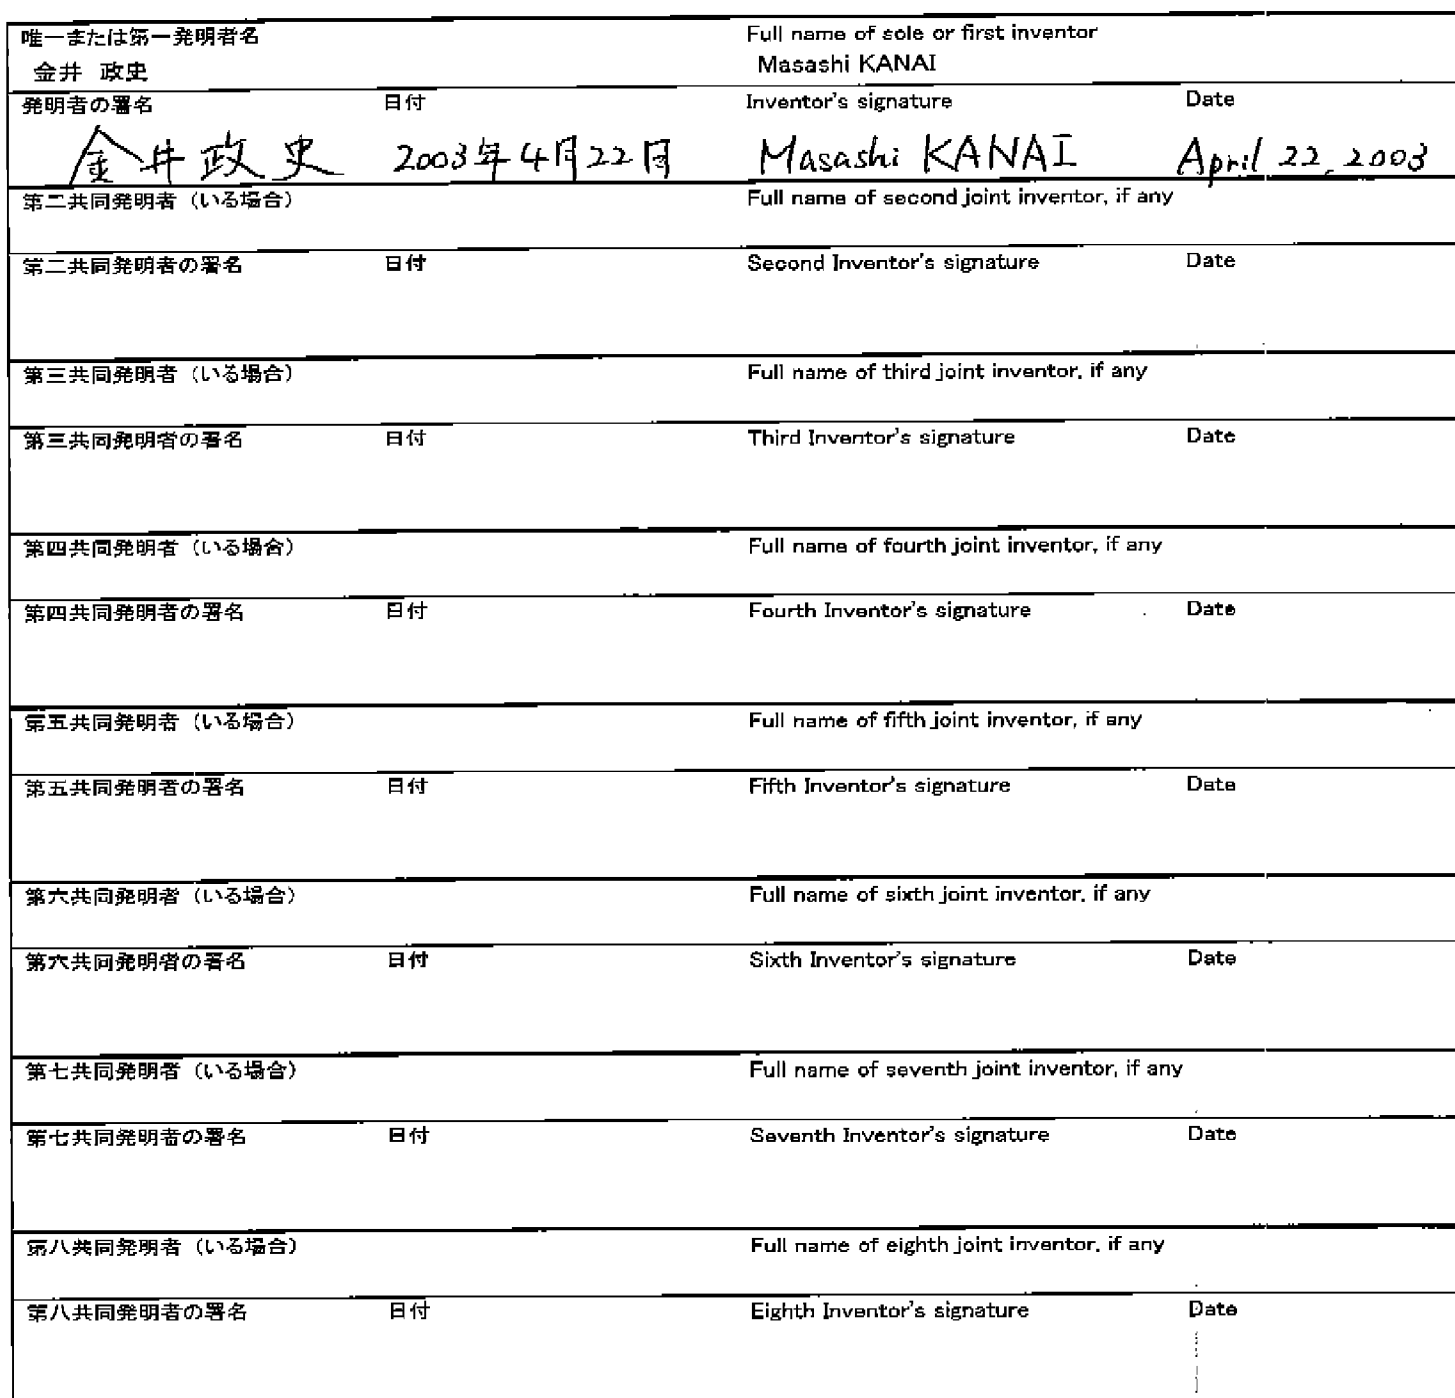 唯一または第一発明者名 Full name of sole or first inventor
金井 政史 Masashi KANAI
発明者の署名 日付 Inventor's signature Date
金井政史 2003年4月22日 Masashi KANAI April 22, 2003
第二共同発明者（いる場合） Full name of second joint inventor, if any
第二共同発明者の署名 日付 Second Inventor's signature Date
第三共同発明者（いる場合） Full name of third joint inventor, if any
第三共同発明者の署名 日付 Third Inventor's signature Date
第四共同発明者（いる場合） Full name of fourth joint inventor, if any
第四共同発明者の署名 日付 Fourth Inventor's signature Date
第五共同発明者（いる場合） Full name of fifth joint inventor, if any
第五共同発明者の署名 日付 Fifth Inventor's signature Date
第六共同発明者（いる場合） Full name of sixth joint inventor, if any
第六共同発明者の署名 日付 Sixth Inventor's signature Date
第七共同発明者（いる場合） Full name of seventh joint inventor, if any
第七共同発明者の署名 日付 Seventh Inventor's signature Date
第八共同発明者（いる場合） Full name of eighth joint inventor, if any
第八共同発明者の署名 日付 Eighth Inventor's signature Date